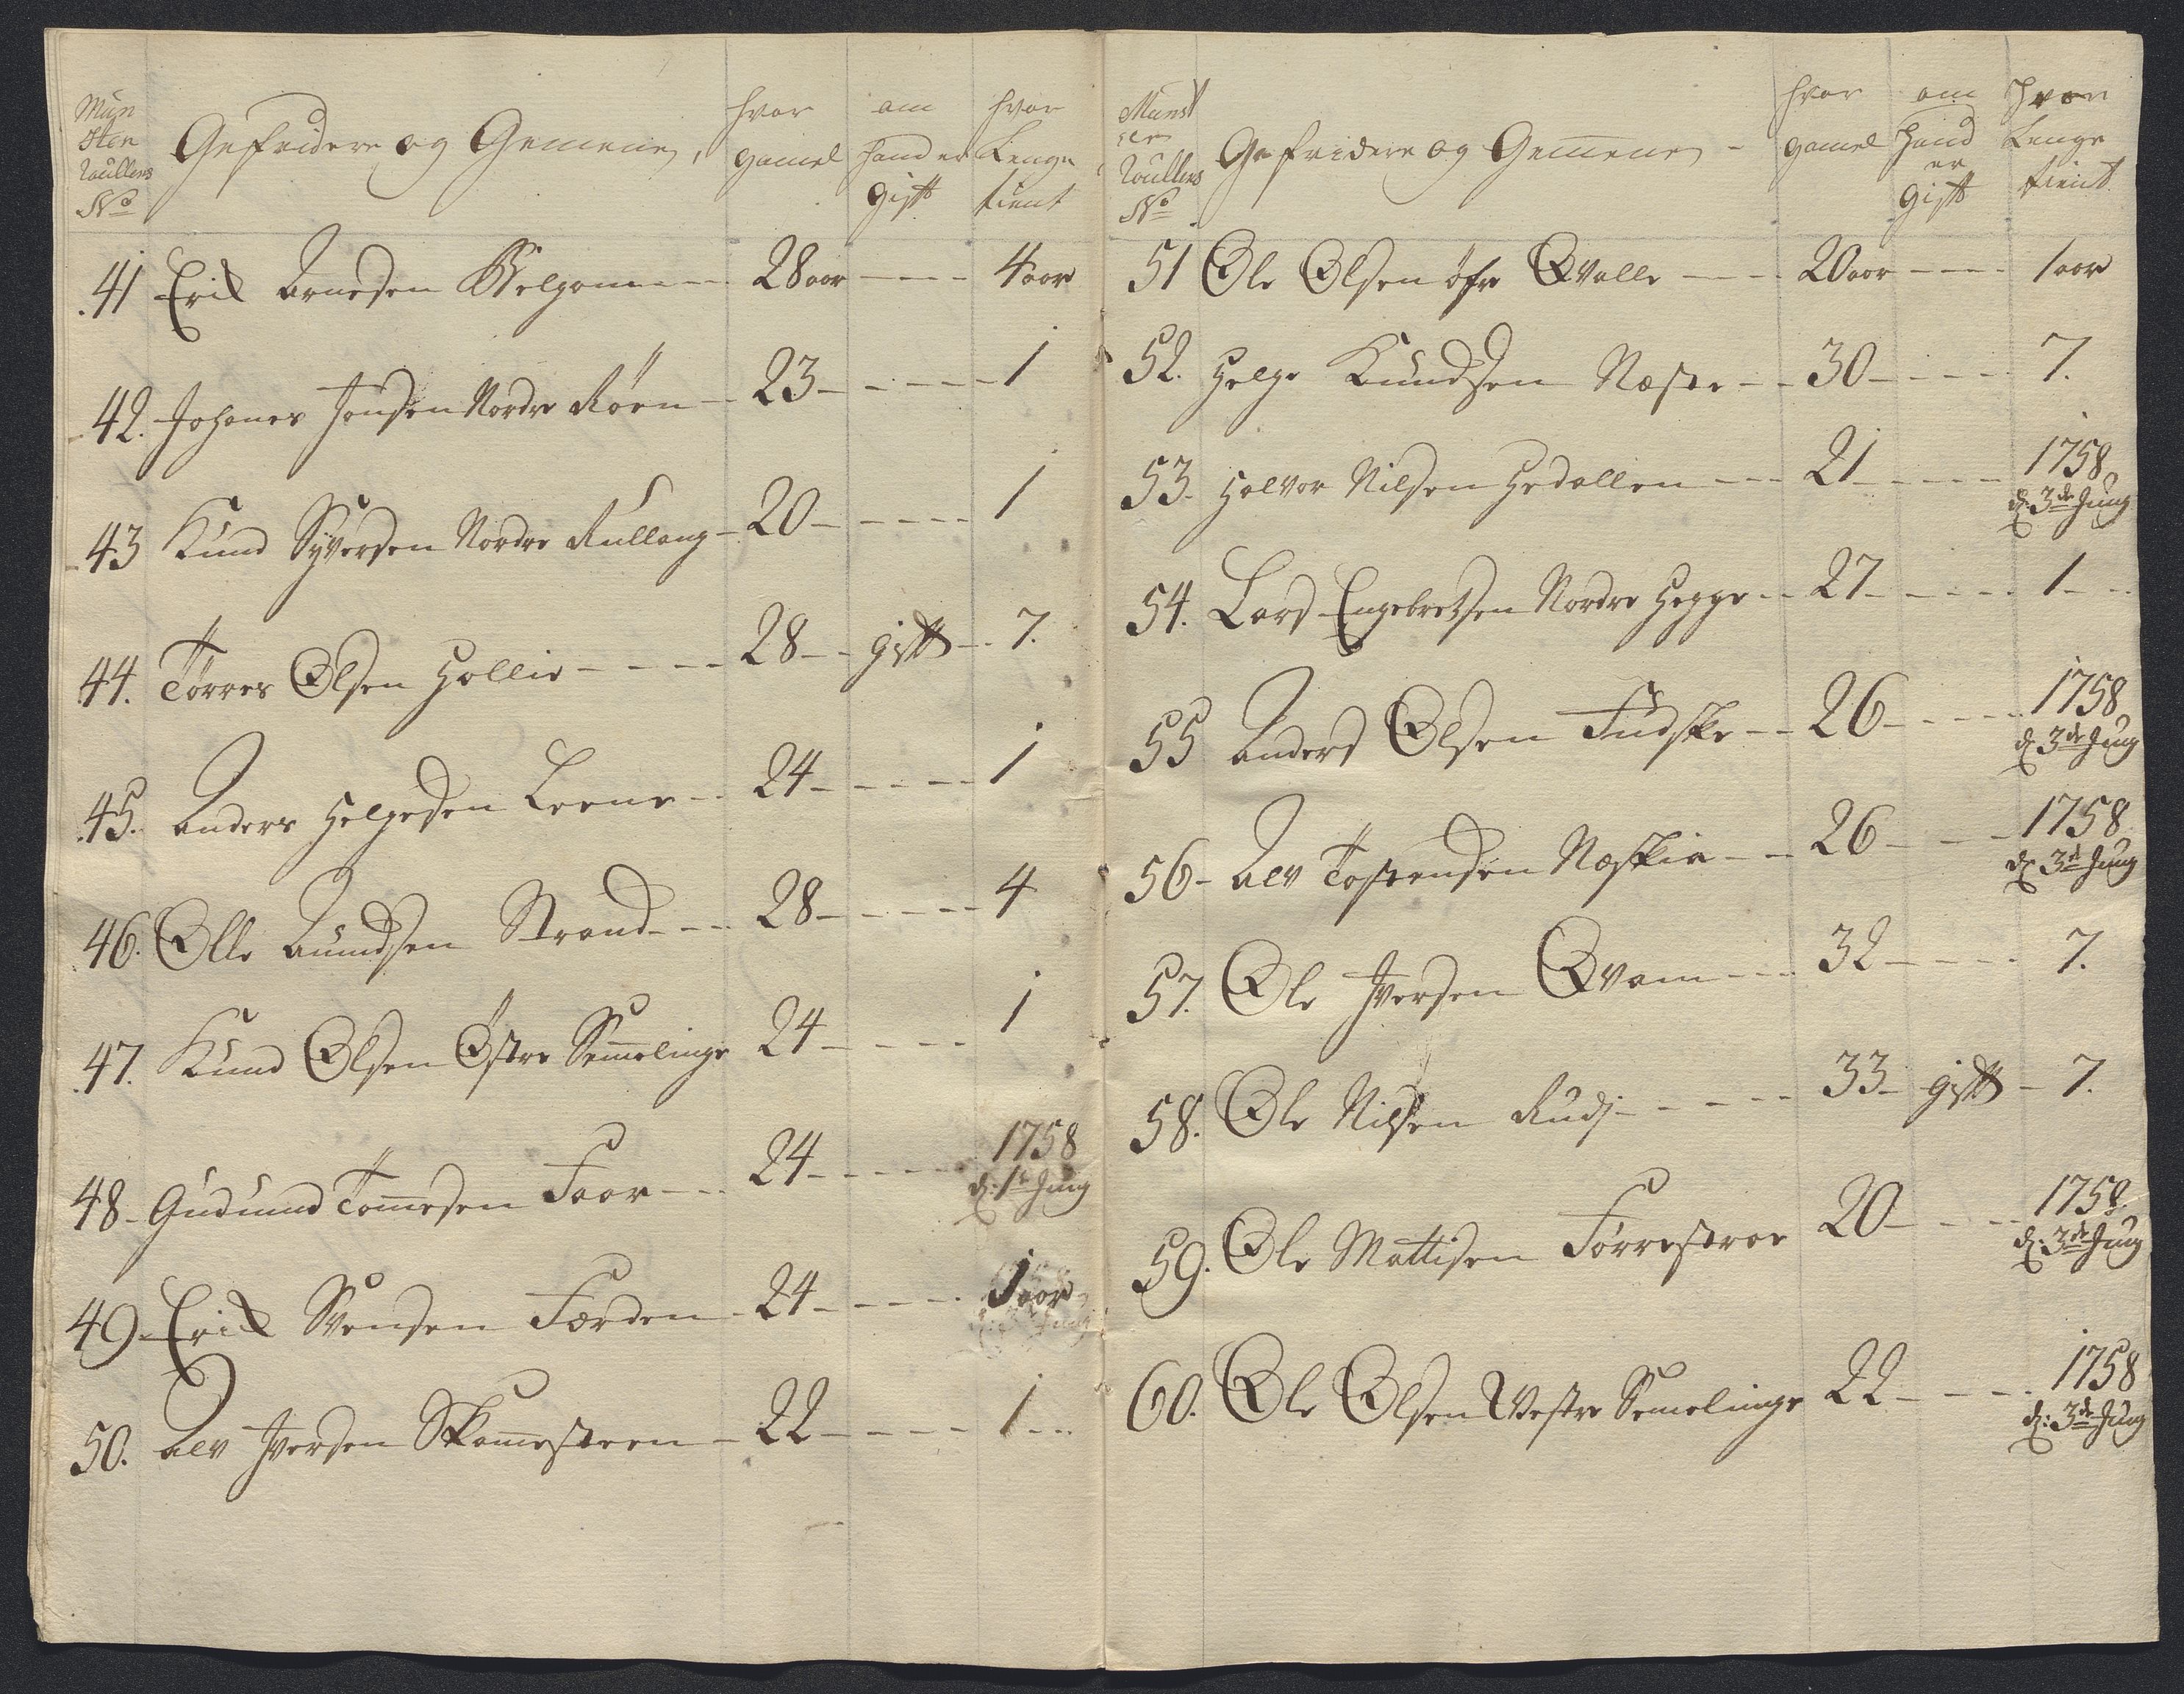 Mün
ster
Roullens
No
Gefridere og Gemene,
hvor
gamel
om
hand er
gift
hvor
Lenge
tient
41 Erik Arnesen Helgom --- 28 aar --- 4 aar
42. Johanes Jonsen Nordre Röen - 23 ---- 1
43 Knud Syversen Nordre Rullang - 20 ---- 1
44. Törres Olsen Hollie ---- 28 -- gift -- 7.
45. Anders Helgesen Leene -- 24 ---- 1
46. Olle Amundsen Strand --- 28 ---- 4
47. Knud Olsen Østre Semelinge 24 ---- 1
48 - Gudmund Tomesen Faar --- 24 ---- 1758
d: 1te Juny
49 - Erik Svensen Færden - 24 ---- 1 aar
50. Alv Iversen Skamesteen - 22 ---- 1 --
Munst
rer
Roullens
No
Gefridere og Gemene -
hvor
gamel
om
hand
er
gift
hvor
Lenge
tient
51 Ole Olsen öfre Qvalle --- 20 aar --- 1 aar
52. Helge Knudsen Næste -- 30 ---- 7.
53. Halvor Nilsen Hedallen --- 21 ---- 1758
d: 3de Juny
54. Lars Engebretsen Nordre Hegge -- 27 ---- 1 --
55 Anders Olsen Fudske -- 26 ---- 1758
d: 3de Juny
56 - Alv Tostensen Næskie -- 26 --- 1758
d: 3de Juny
57. Ole Iversen Qvam --- 32 ---- 7.
58. Ole Nilsen Rudj ---- 33 - gift - 7.
59. Ole Mattisen Förrestroe 20 ---- 1758
d: 3de Juny
60. Ole Olsen Westre Semelinge 22 ---- 1758
d: 3de Juny